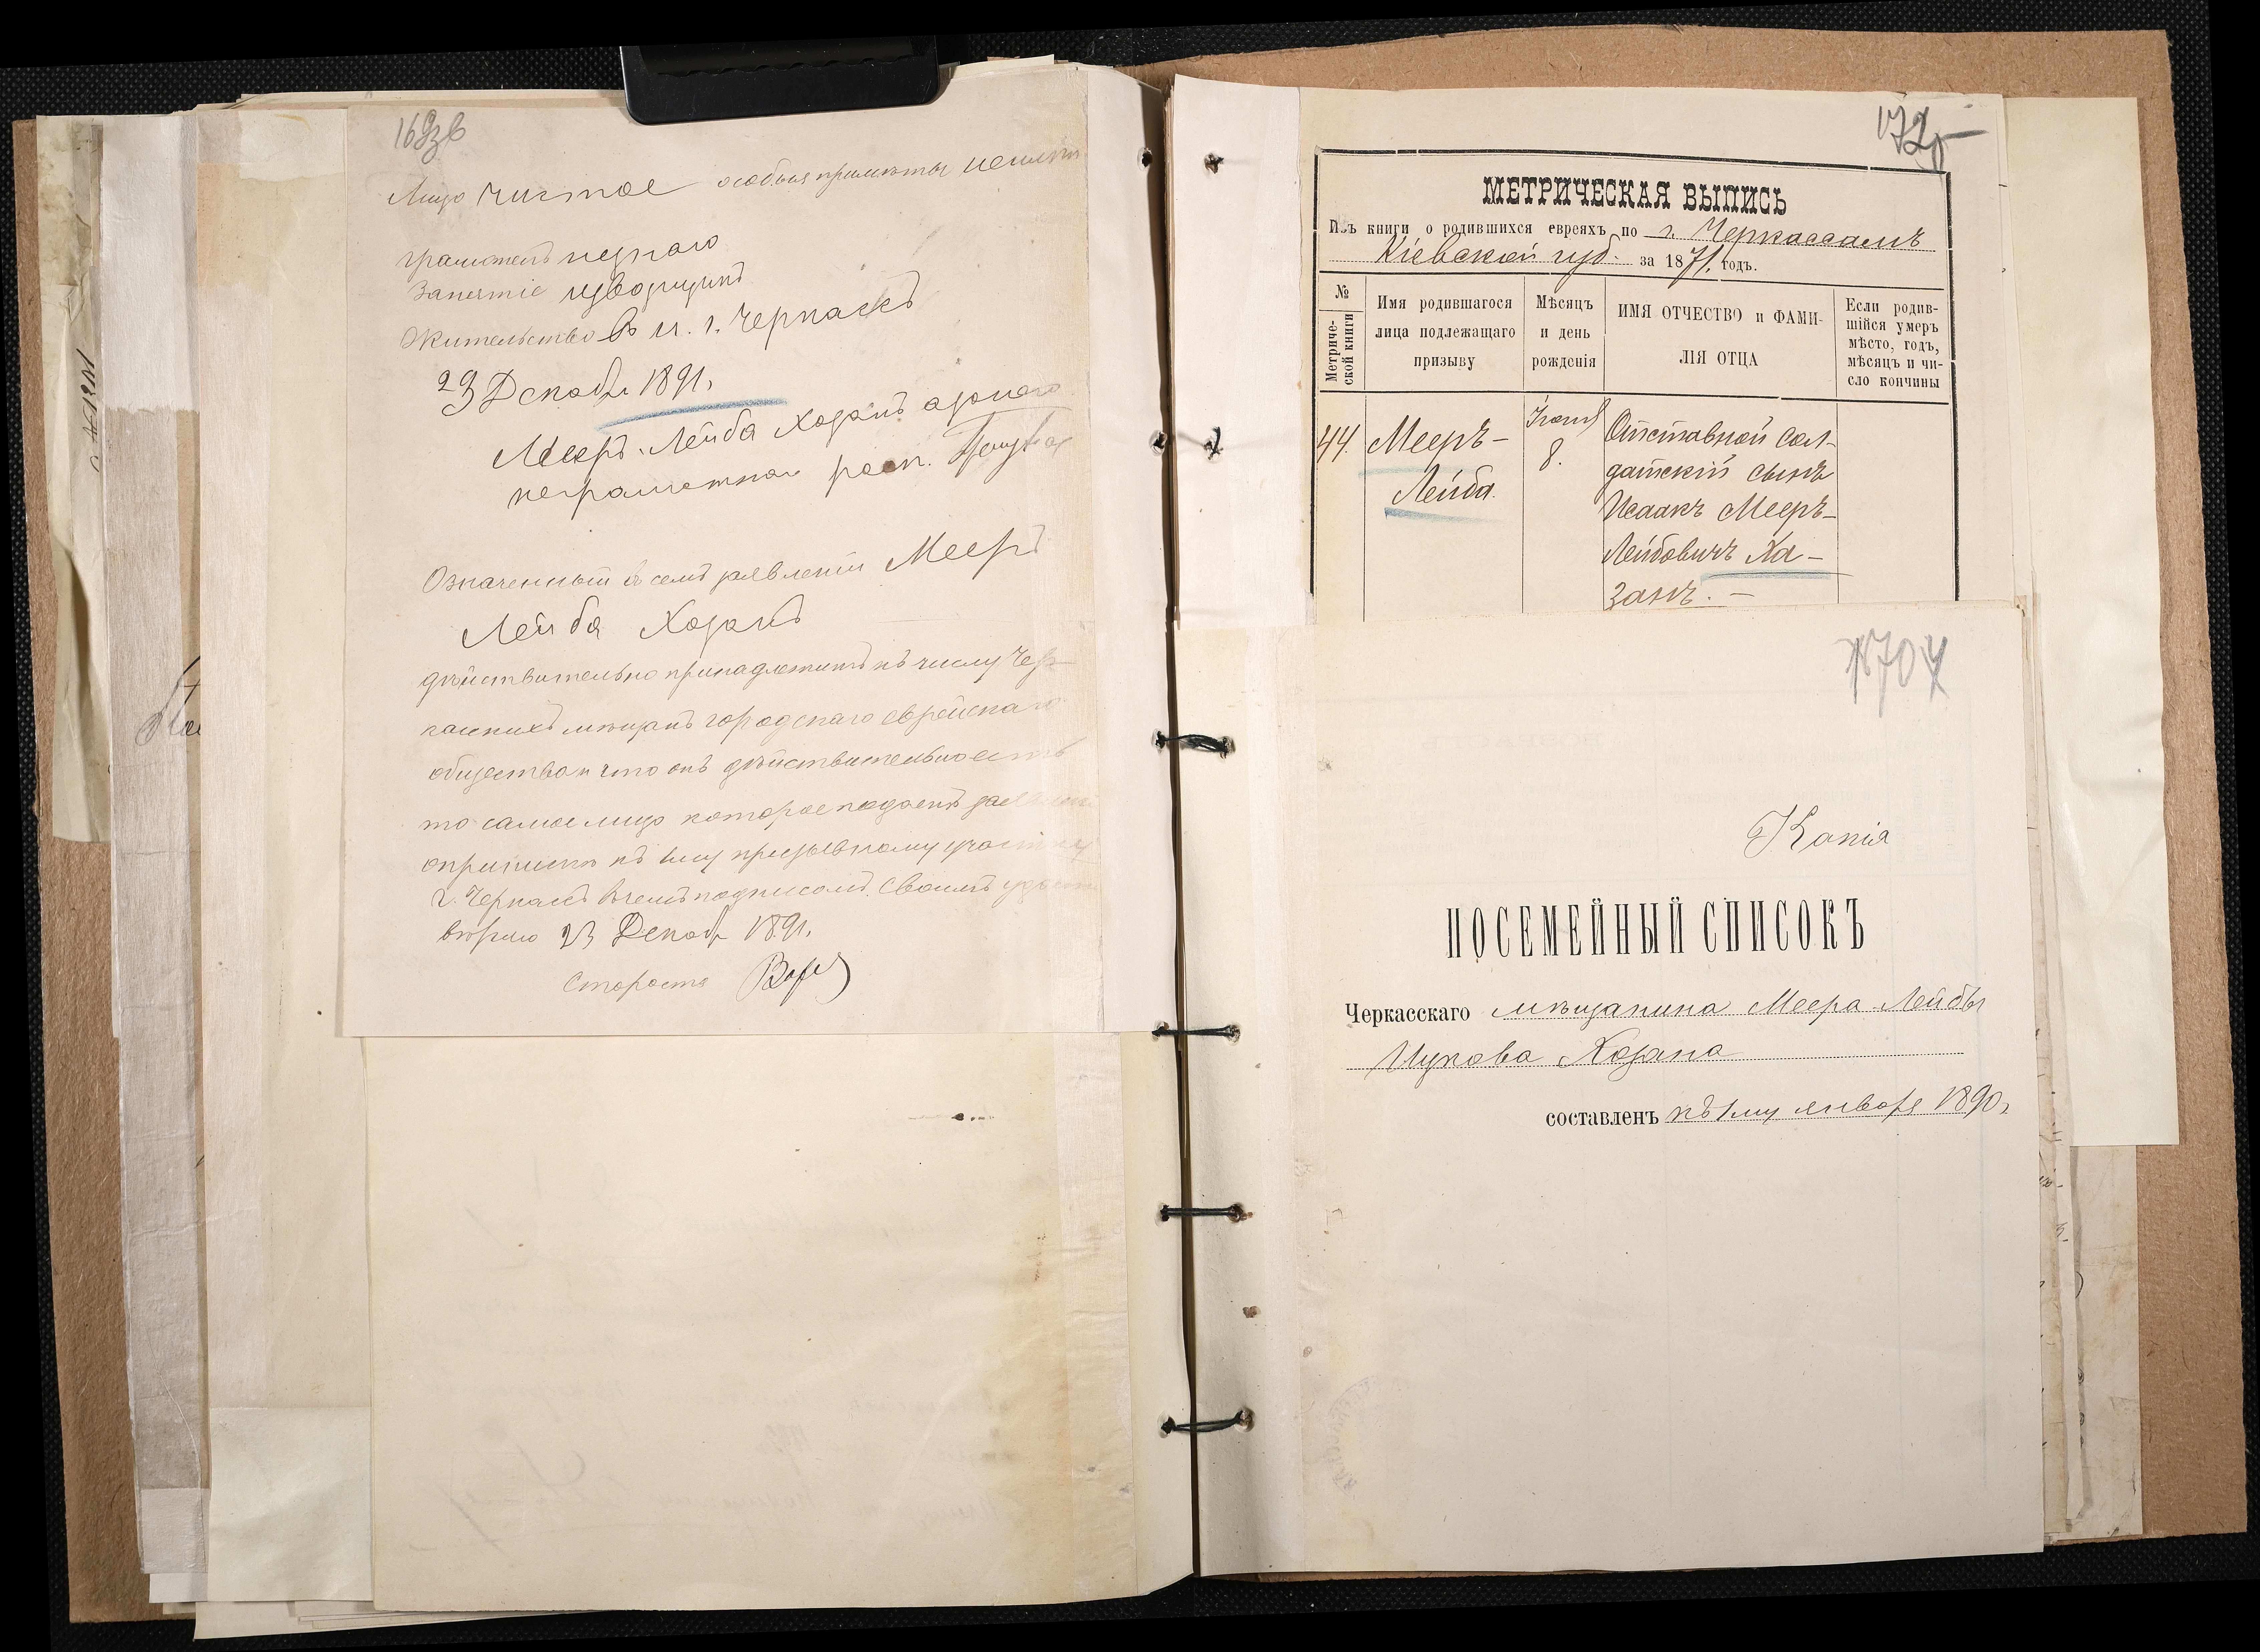 169зв
Лицо чистое особыя приметы неимѣетъ
грамотенъ
Занятіе извощикъ
Жительство въ м. г. Черкассъ
23 Декабря 1891.
Мееръ-Лейба Хозанъ а за него
неграмотнаго расп.
Означенный въ семъ заявленіи Мееръ
Лейба Хозанъ
дѣйствительно принадлежитъ къ числу Чер-
касскихъ мѣщанъ городскаго еврейскаго
общества и что онъ дѣйствительно есть
то самое лицо которое подаетъ заявленіе
оприпискѣ къ 1му призывному участку
г. Черкассъ въ чемъ подписомъ своимъ удосто
вѣряю 23 Декабр 1891.
Староста
172
МЕТРИЧЕСКАЯ ВЫПИСЬ
Изъ книги о родившихся евреяхъ по г. Черкассамъ
Кіевской губ. за 1871 годъ.
№ Метриче-
ской книги
Имя родившагося
лица подлежащаго
призыву
Мѣсяцъ
и день
рожденія
ИМЯ ОТЧЕСТВО и ФАМИ-
ЛІЯ ОТЦА
Если родив-
шійся умеръ
мѣсто, годъ,
мѣсяцъ и чи-
сло кончины
44.
Мееръ-
Лейба.
8.
Отставной Сол-
датскій сынъ
Исаакъ Мееръ-
Лейбовичъ Ха-
занъ. —
170
Копія
ПОСЕМЕЙНЫЙ СПИСОКЪ
Черкасскаго мѣщанина Меера-Лейбы
Ицкова Хозана
составленъ къ 1му января 1890г